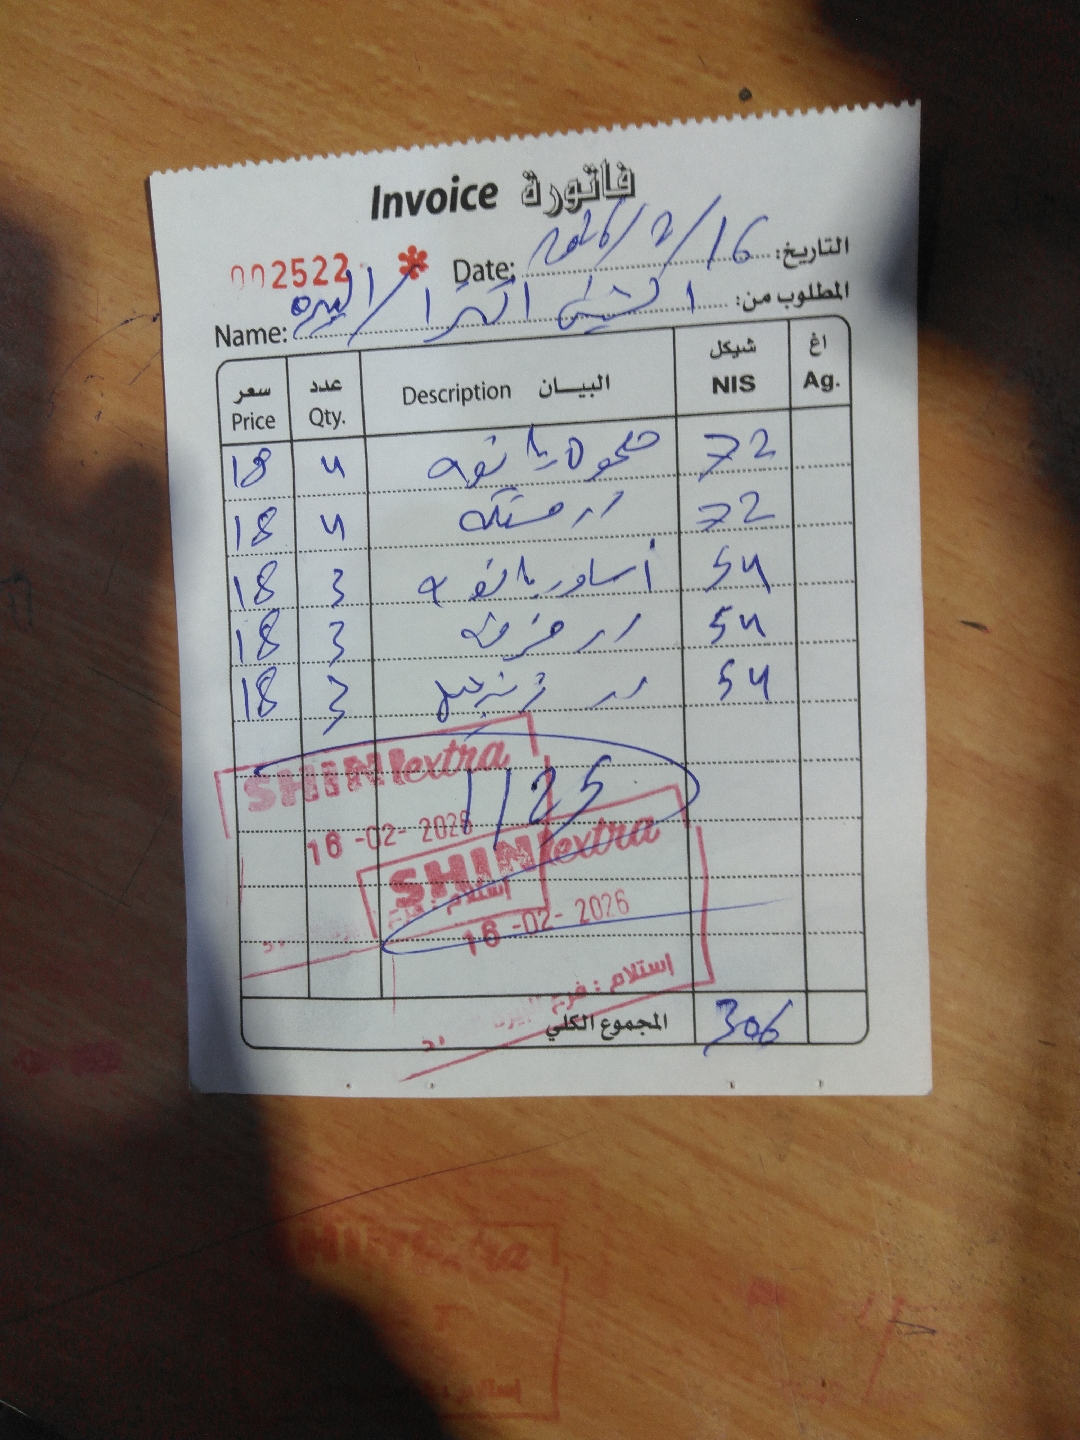 Invoice فاتورة
002522 * Date: 2026/2/16 التاريخ:
Name: الشيني اكسترا / البيره المطلوب من:
سعر Price عدد Qty. Description البيان شيكل NIS اغ Ag.
18 4 72
18 4 // مستكه 72
18 3 أساور 54
18 3 // قرفه 54
18 3 // زنجبيل 54
1125
SHINI extra
16-02-2026
استلام : فرع
SHINI extra
16-02-2026
استلام : فرع البيرة
المجموع الكلي 306